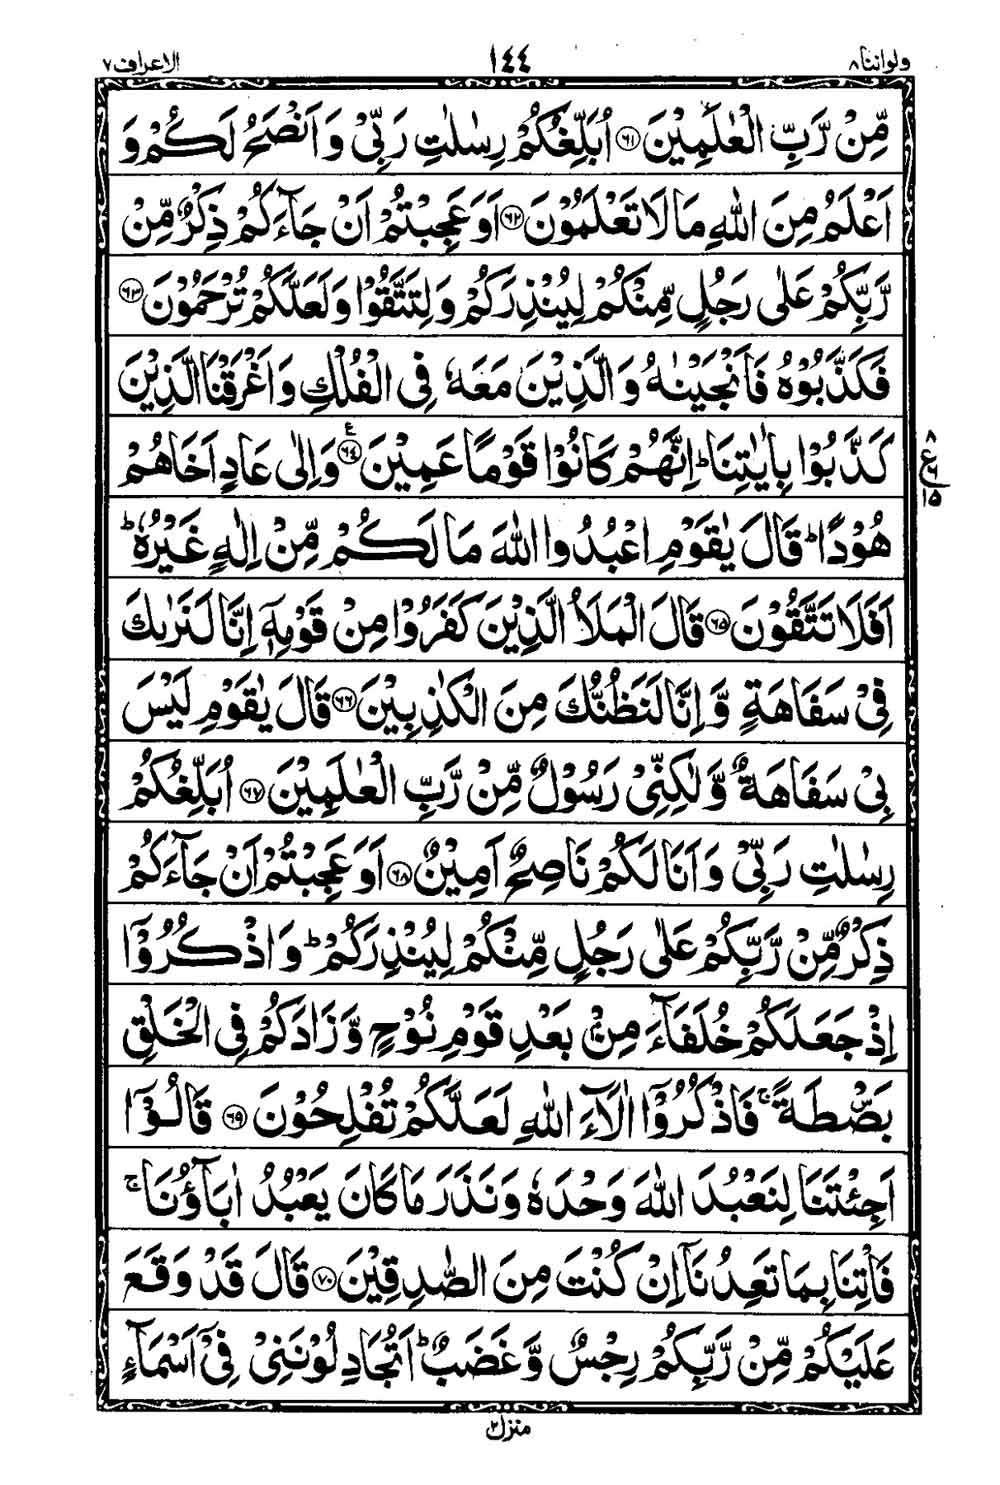 ولواننا ٨ ١٤٤ الاعراف ٧
مِّنْ رَّبِّ الْعٰلَمِيْنَ ﴿٦١﴾ اُبَلِّغُكُمْ رِسٰلٰتِ رَبِّيْ وَاَنْصَحُ لَكُمْ وَ
اَعْلَمُ مِنَ اللّٰهِ مَا لَا تَعْلَمُوْنَ ﴿٦٢﴾ اَوَعَجِبْتُمْ اَنْ جَآءَكُمْ ذِكْرٌ مِّنْ
رَّبِّكُمْ عَلٰى رَجُلٍ مِّنْكُمْ لِيُنْذِرَكُمْ وَلِتَتَّقُوْا وَلَعَلَّكُمْ تُرْحَمُوْنَ ﴿٦٣﴾
فَكَذَّبُوْهُ فَاَنْجَيْنٰهُ وَالَّذِيْنَ مَعَهٗ فِي الْفُلْكِ وَاَغْرَقْنَا الَّذِيْنَ
كَذَّبُوْا بِاٰيٰتِنَا ؕ اِنَّهُمْ كَانُوْا قَوْمًا عَمِيْنَ ﴿٦٤﴾ ع وَاِلٰى عَادٍ اَخَاهُمْ
٨ ع ١٥
هُوْدًا ؕ قَالَ يٰقَوْمِ اعْبُدُوا اللّٰهَ مَا لَكُمْ مِّنْ اِلٰهٍ غَيْرُهٗ ؕ
اَفَلَا تَتَّقُوْنَ ﴿٦٥﴾ قَالَ الْمَلَاُ الَّذِيْنَ كَفَرُوْا مِنْ قَوْمِهٖٓ اِنَّا لَنَرٰىكَ
فِيْ سَفَاهَةٍ وَّاِنَّا لَنَظُنُّكَ مِنَ الْكٰذِبِيْنَ ﴿٦٦﴾ قَالَ يٰقَوْمِ لَيْسَ
بِيْ سَفَاهَةٌ وَّلٰكِنِّيْ رَسُوْلٌ مِّنْ رَّبِّ الْعٰلَمِيْنَ ﴿٦٧﴾ اُبَلِّغُكُمْ
رِسٰلٰتِ رَبِّيْ وَاَنَا لَكُمْ نَاصِحٌ اَمِيْنٌ ﴿٦٨﴾ اَوَعَجِبْتُمْ اَنْ جَآءَكُمْ
ذِكْرٌ مِّنْ رَّبِّكُمْ عَلٰى رَجُلٍ مِّنْكُمْ لِيُنْذِرَكُمْ ؕ وَاذْكُرُوْٓا
اِذْ جَعَلَكُمْ خُلَفَآءَ مِنْۢ بَعْدِ قَوْمِ نُوْحٍ وَّزَادَكُمْ فِي الْخَلْقِ
بَصْۜطَةً ۚ فَاذْكُرُوْٓا اٰلَآءَ اللّٰهِ لَعَلَّكُمْ تُفْلِحُوْنَ ﴿٦٩﴾ قَالُوْٓا
اَجِئْتَنَا لِنَعْبُدَ اللّٰهَ وَحْدَهٗ وَنَذَرَ مَا كَانَ يَعْبُدُ اٰبَآؤُنَا ۚ
فَاْتِنَا بِمَا تَعِدُنَآ اِنْ كُنْتَ مِنَ الصّٰدِقِيْنَ ﴿٧٠﴾ قَالَ قَدْ وَقَعَ
عَلَيْكُمْ مِّنْ رَّبِّكُمْ رِجْسٌ وَّغَضَبٌ ؕ اَتُجَادِلُوْنَنِيْ فِيْٓ اَسْمَآءٍ
منزل ٢